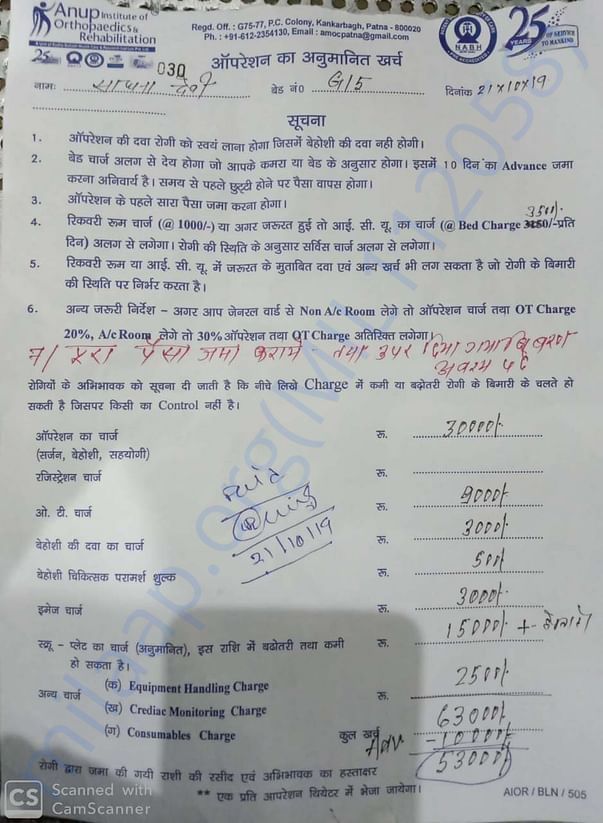 Anup Institute of
Orthopaedics &
Rehabilitation
Regd. Off. : G75-77, P.C. Colony, Kankarbagh, Patna - 800020
Ph. : +91-612-2354130, Email : amocpatna@gmail.com
NABH
25 YEARS OF SERVICE TO MANKIND
030
ऑपरेशन का अनुमानित खर्च
नामः साधना देवी बेड नं0 G15 दिनांक 21/10/19
सूचना
1. ऑपरेशन की दवा रोगी को स्वयं लाना होगा जिसमें बेहोशी की दवा नही होगी।
2. बेड चार्ज अलग से देय होगा जो आपके कमरा या बेड के अनुसार होगा। इसमें 10 दिन का Advance जमा
करना अनिवार्य है। समय से पहले छुट्टी होने पर पैसा वापस होगा।
3. ऑपरेशन के पहले सारा पैसा जमा करना होगा।
3500/-
4. रिकवरी रूम चार्ज (@ 1000/-) या अगर जरूरत हुई तो आई. सी. यू. का चार्ज (@ Bed Charge 3150/-प्रति
दिन) अलग से लगेगा। रोगी की स्थिति के अनुसार सर्विस चार्ज अलग से लगेगा।
5. रिकवरी रूम या आई. सी. यू. में जरूरत के मुताबित दवा एवं अन्य खर्च भी लग सकता है जो रोगी के बिमारी
की स्थिति पर निर्भर करता है।
6. अन्य जरूरी निर्देश – अगर आप जेनरल वार्ड से Non A/c Room लेगे तो ऑपरेशन चार्ज तथा OT Charge
20%, A/c Room लेगे तो 30% ऑपरेशन तथा OT Charge अतिरिक्त लगेगा।
पैसा जमा कराने - तथा उपर दिया गया विवरण
अवश्य पढे
रोगियों के अभिभावक को सूचना दी जाती है कि नीचे लिखे Charge में कमी या बढ़ोतरी रोगी के बिमारी के चलते हो
सकती है जिसपर किसी का Control नहीं है।
ऑपरेशन का चार्ज रू. 30000/-
(सर्जन, बेहोशी, सहयोगी)
रजिस्ट्रेशन चार्ज रू.
ओ. टी. चार्ज रू. 9000/-
बेहोशी की दवा का चार्ज रू. 3000/-
बेहोशी चिकित्सक परामर्श शुल्क रू. 500/-
इमेज चार्ज रू. 3000/-
स्क्रू – प्लेट का चार्ज (अनुमानित), इस राशि में बढोतरी तथा कमी रू. 15000/- +
हो सकता है।
21/10/19
अन्य चार्ज (क) Equipment Handling Charge रू. 2500/-
(ख) Crediac Monitoring Charge
(ग) Consumables Charge कुल खर्च 63000/-
Adv - 10000/-
53000/-
रोगी द्वारा जमा की गयी राशी की रसीद एवं अभिभावक का हस्ताक्षर
** एक प्रति आपरेशन थियेटर में भेजा जायेगा।
AIOR / BLN / 505
CS Scanned with
CamScanner